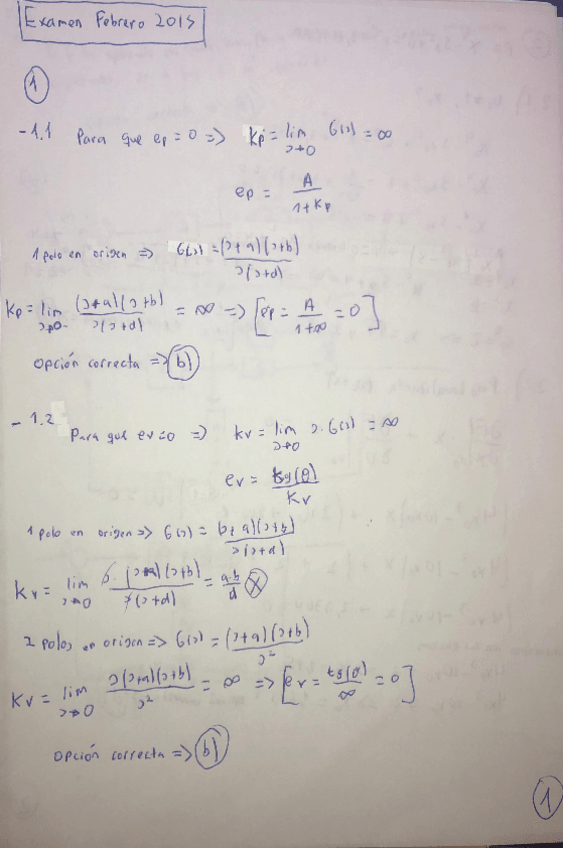 Examen Febrero 2015
1
- 1.1 Para que ep = 0 => Kp = lim s→0 G(s) = ∞
ep = A / (1 + Kp)
1 polo en origen => G(s) = (s+a)(s+b) / s(s+d)
Kp = lim s→0 (s+a)(s+b) / s(s+d) = ∞ => [ep = A / (1+∞) = 0]
Opción correcta => b)
- 1.2 Para que ev = 0 => Kv = lim s→0 s·G(s) = ∞
ev = tg(θ) / Kv
1 polo en origen => G(s) = (s+a)(s+b) / s(s+d)
Kv = lim s→0 s·(s+a)(s+b) / s(s+d) = a·b / d X
2 polos en origen => G(s) = (s+a)(s+b) / s²
Kv = lim s→0 s(s+a)(s+b) / s² = ∞ => [ev = tg(θ) / ∞ = 0]
Opción correcta => b)
1